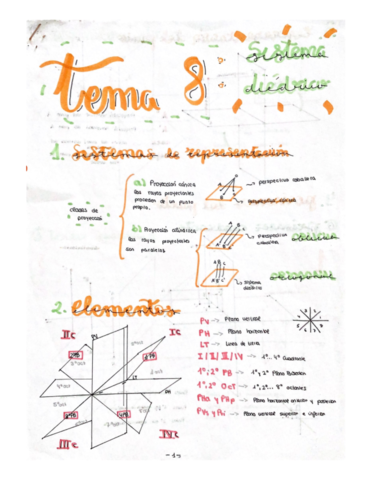 tema 8:
sistema
diédrico
1. sistemas de representación
clases de
proyección
a) Proyección cónica
los rayos proyectantes
proceden de un punto
propio.
perspectiva
b) Proyección cilíndrica
los rayos proyectantes
son paralelos
Perspectiva
oblicua
sistema
diédrico
ortogonal
2. elementos
IIc
PV
Ic
PH
LT
IIIc
IVc
PV -> Plano vertical
PH -> Plano horizontal
LT -> Línea de tierra
I/II/III/IV -> 1º... 4º cuadrante
1º, 2º PB -> 1º y 2º Plano Bisector
1º, 2º Oct -> 1º, 2º... 8º octantes
PHa y PHp -> Plano horizontal anterior y posterior
PVs y PVi -> Plano vertical superior e inferior